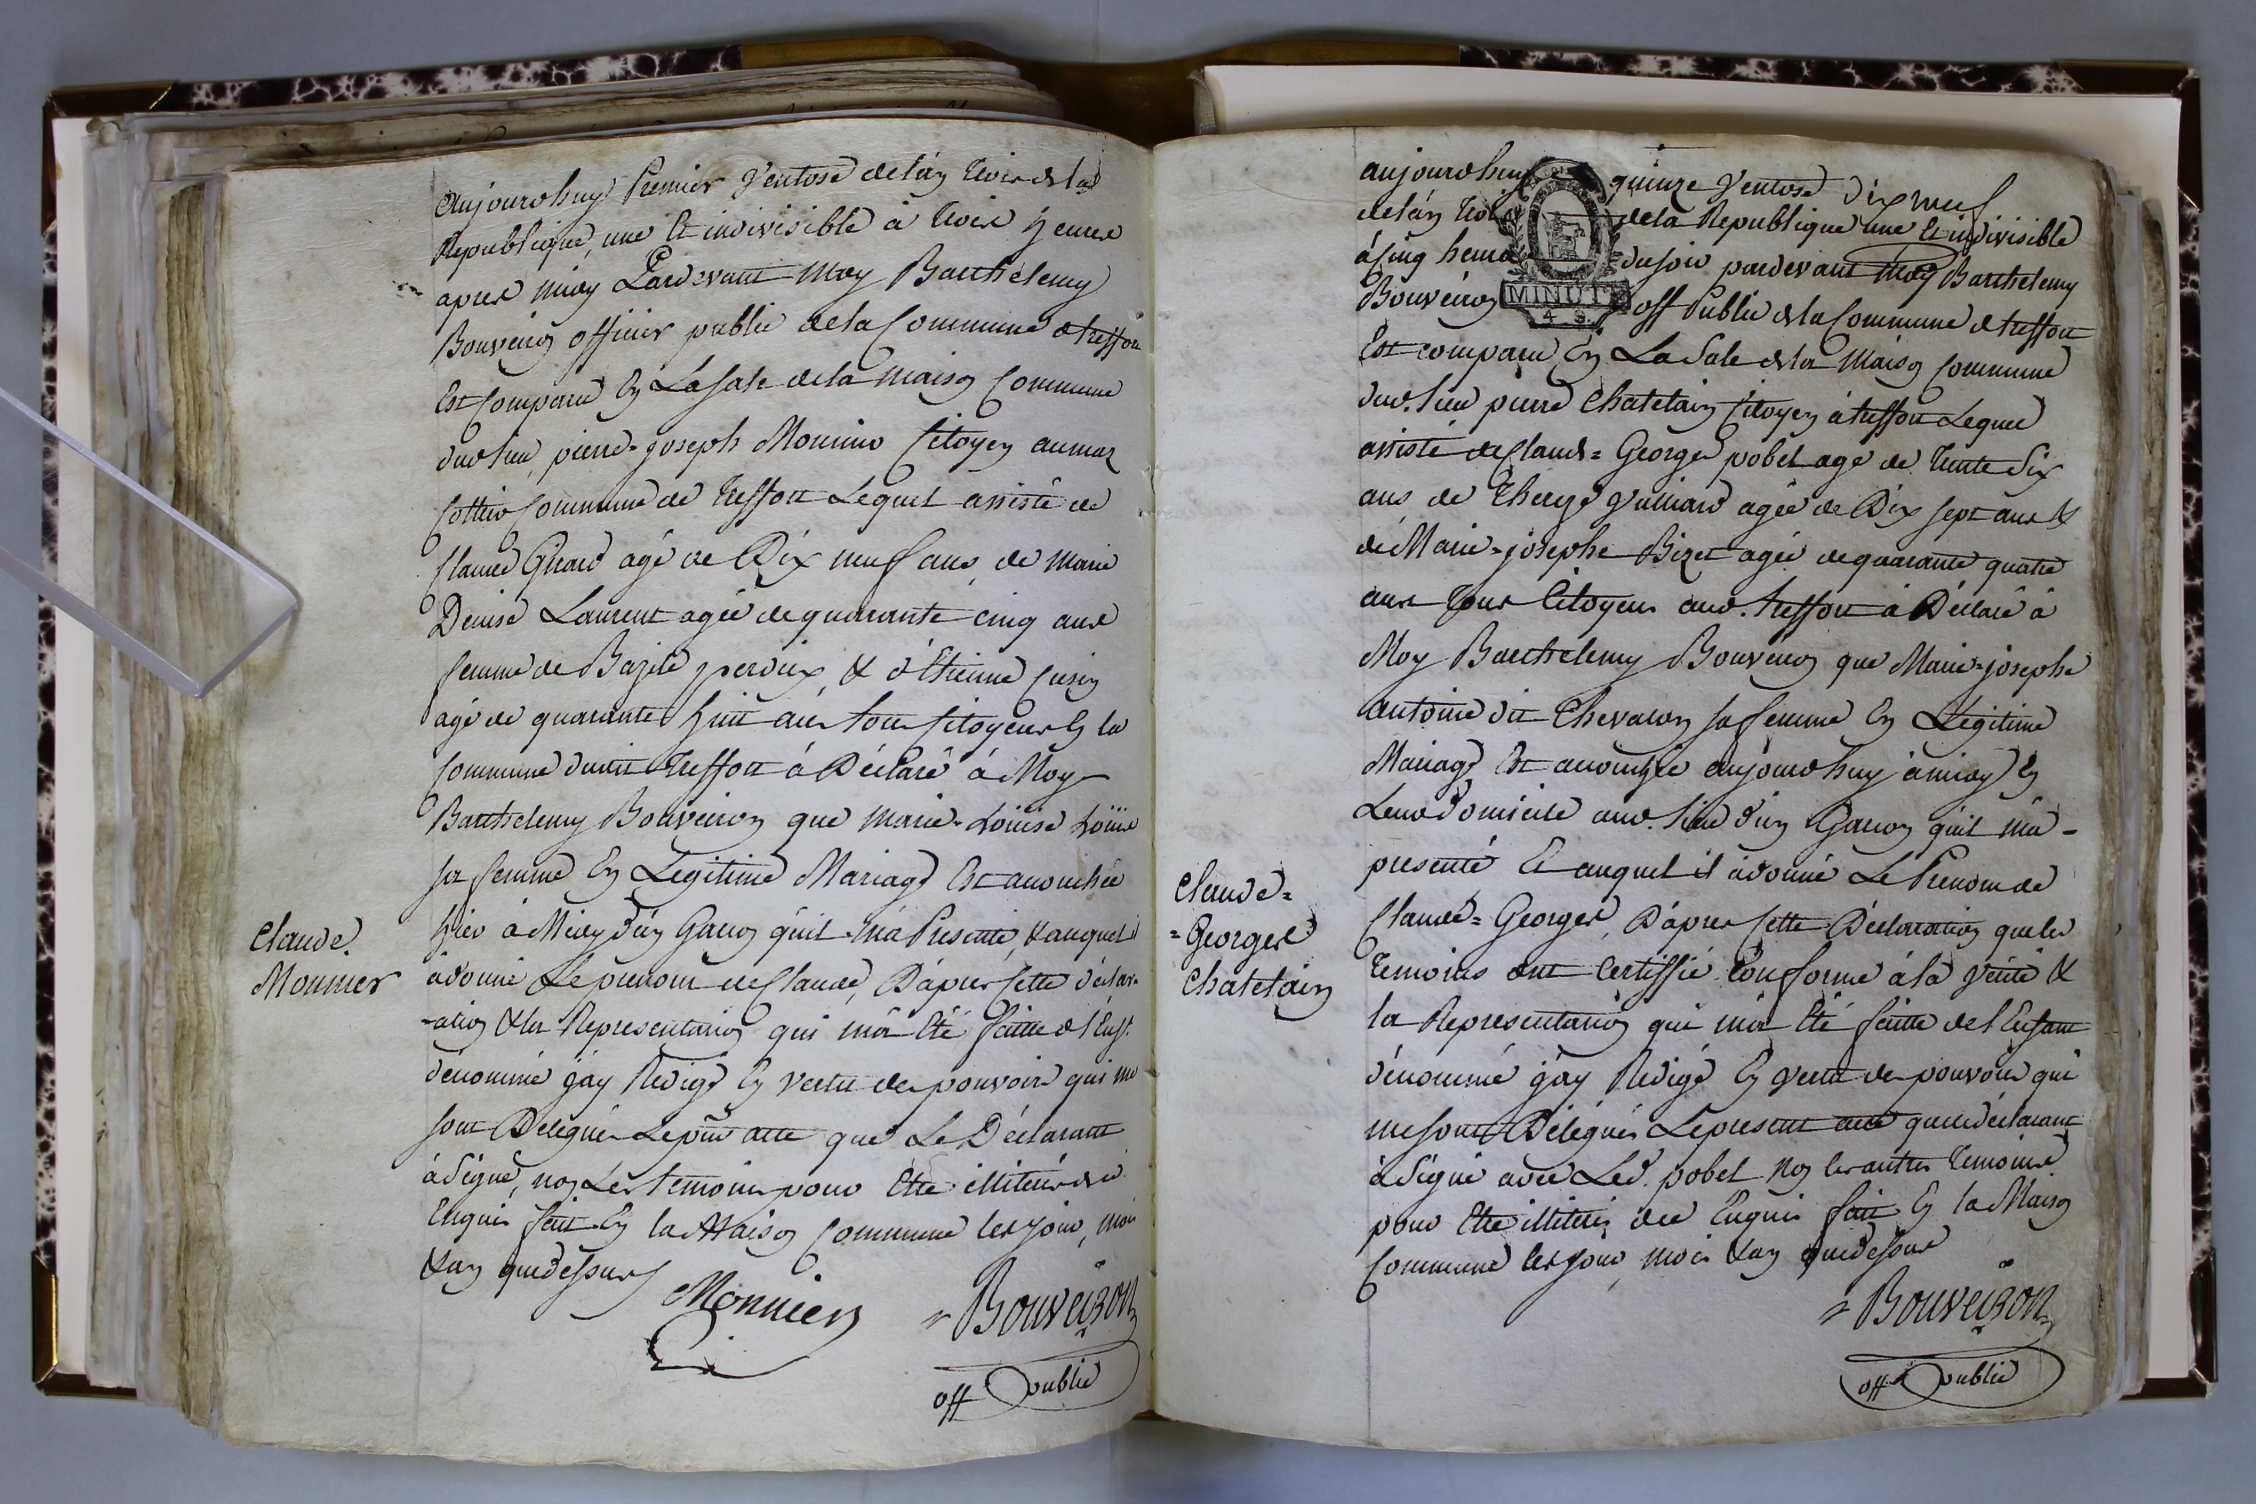 aujourdhuy Premier Ventose de lan trois de la
Republique, une et indivisible à trois heures
apres midy Pardevant moy Barthelemy
Bouveiron officier public de la Commune de treffort
Est Comparu En La Sale de la maison Commune
dud. lieu, pierre-joseph Monnier Citoyen au maz
Cottier Commune de treffort Lequel assisté de
Claude Girard agé de Dix neuf ans, de marie
Denise Laurent agée de quarante cinq ans
femme de Bazile perdrix & d'Etienne Cusin
agé de quarante huit ans tous Citoyens En la
Commune dudit treffort à Déclaré à Moy
Barthelemy Bouveiron que marie-Loüise
sa femme En Legitime Mariage Est accouchée
hier à Midy d'un Garcon qu'il m'a Presenté, & auquel il
à donné Le prenom de Claude, D'apres Cette déclar-
-ation & la Representation qui m'a Eté faitte de l'Enft.
dénommé j'ay Redigé En vertu des pouvoirs qui me
sont Delegués Le pnt acte que Le Déclarant
à Signé, non Les temoins pour Etre illiterés de ce
Enquis fait En la Maison Commune les jour, mois
& an que dessus
Claude
Monnier
Monnier
Bouveiron
off public
dix neuf
aujourdhuy quinze Ventose
de lan trois de la Republique une Et indivisible
à Cinq heures du soir pardevant moy Barthelemy
Bouveiron off Public de la Commune de treffort
MINUTE
4. S.
Est comparu En La Sale de la Maison Commune
dud. lieu pierre Chatelain Citoyen à treffort Lequel
assisté de Claude=George pobel agé de trente Six
ans de Thereze Vuilliard agée de Dix sept ans &
de Marie-josephe Bizet agée de quarante quatre
ans tous Citoyens aud. treffort à Déclaré à
Moy Barthelemy Bouveiron que Marie-josephe
Antoine dit Chevalon sa femme En Légitime
Mariage Est accouchée aujourdhuy à midy En
Leur Domicile aud. lieu d'un Garcon qu'il m'a-
presenté Et auquel il à donné Le Prenom de
Claude=George, D'apres Cette Déclaration que les
temoins ont Certiffié Conforme à la verité &
la Representation qui m'a Eté faitte de l'Enfant
dénommé j'ay Redigé En Vertu des pouvoirs qui
me sont Délégués Le present acte que le déclarant
à Signé avec Led. pobel non les autres temoins
pour Etre illiterés de ce Enquis fait En la Maison
Commune les jour, mois & an que dessus
Claude=
=George
Chatelain
Bouveiron
off public